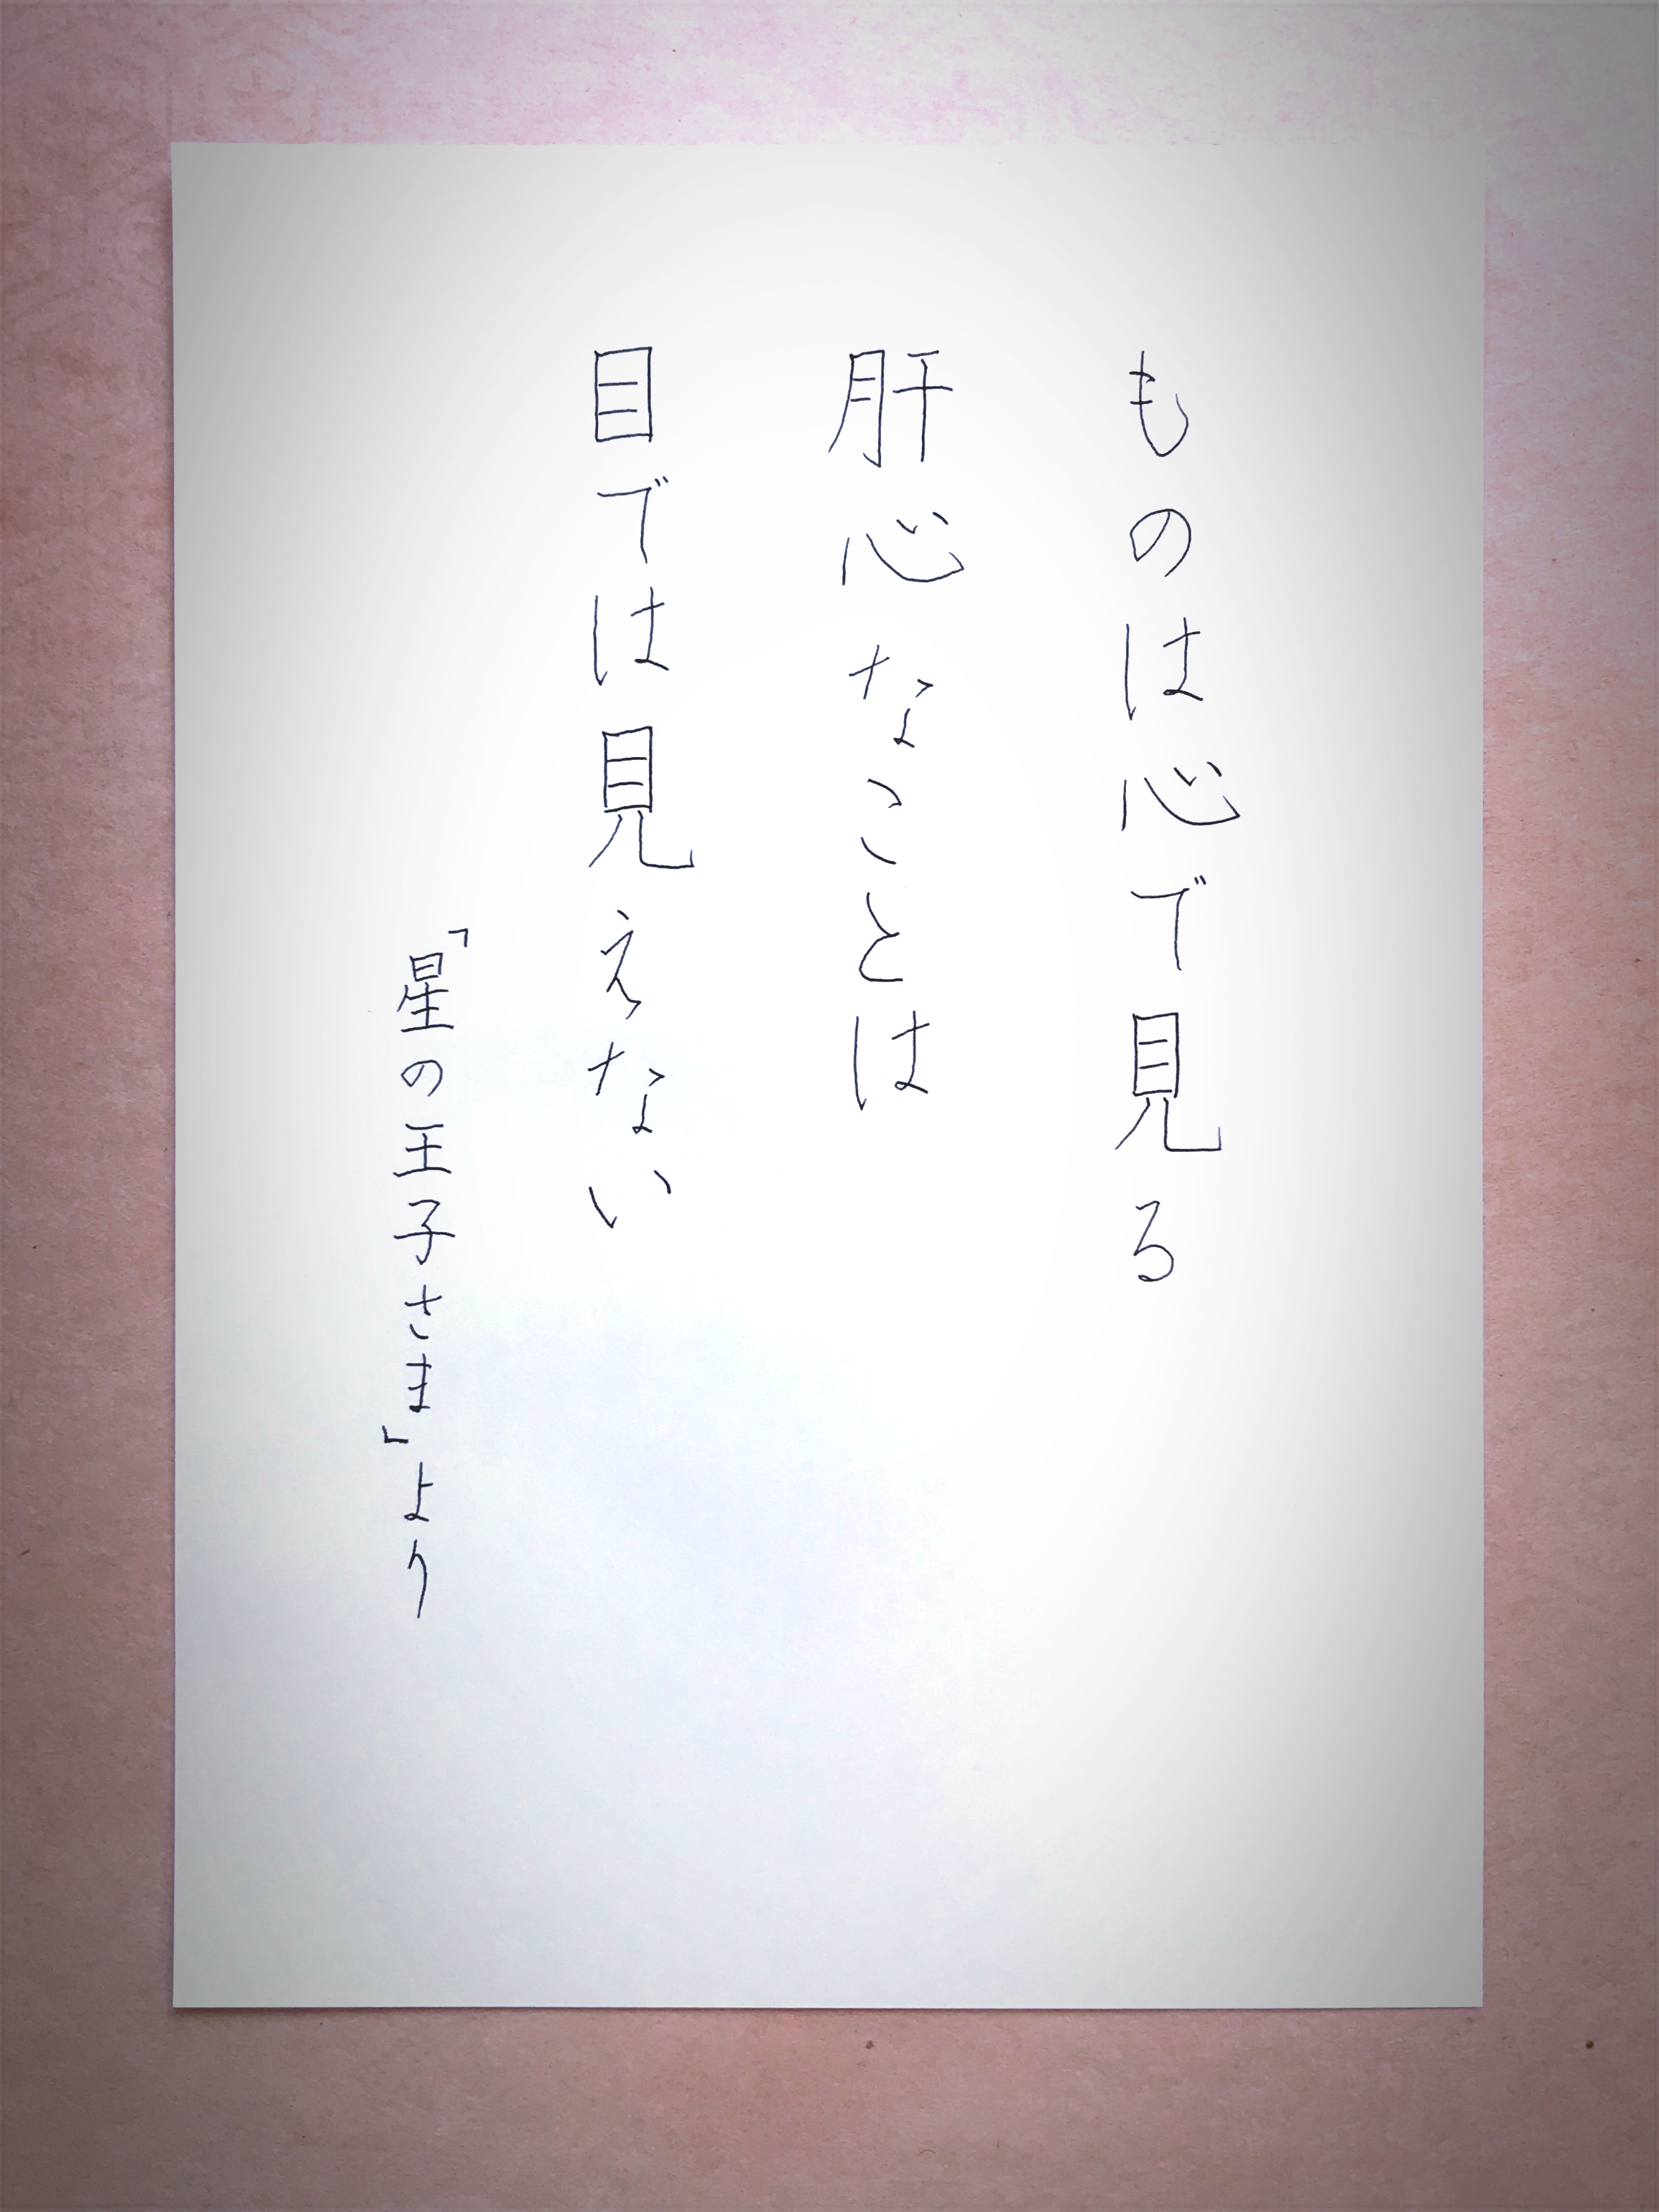 ものは心で見る
肝心なことは
目では見えない
「星の王子さま」より